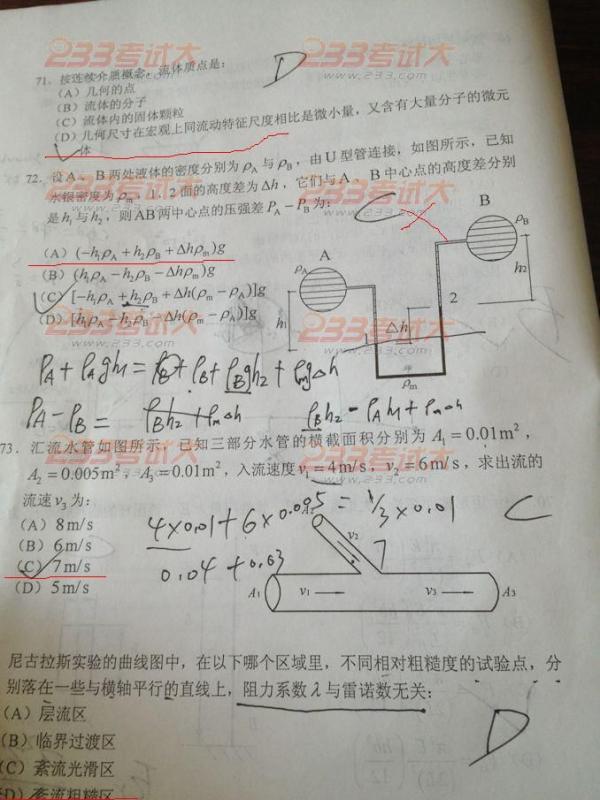 233考试大
www.233.com
71．按连续介质概念，流体质点是：
D
（A）几何的点
（B）流体的分子
（C）流体内的固体颗粒
（D）几何尺寸在宏观上同流动特征尺度相比是微小量，又含有大量分子的微元
体
72．设A、B两处液体的密度分别为ρA与ρB，由U型管连接，如图所示，已知
水银密度为ρm，1、2面的高度差为Δh，它们与A、B中心点的高度差分别
是h1与h2，则AB两中心点的压强差PA－PB为：
（A）(−h1ρA + h2ρB + Δhρm)g
（B）(h1ρA − h2ρB − Δhρm)g
（C）[−h1ρA + h2ρB + Δh(ρm − ρA)]g
（D）[h1ρA − h2ρB − Δh(ρm − ρA)]g
A
ρA
h1
B
ρB
h2
2
Δh
ρm
PA + ρAgh1 = PB + ρBgh2 + ρmgΔh
PA − PB = ρBh2 + ρmΔh
ρBh2 − ρAh1 + ρmΔh
73．汇流水管如图所示，已知三部分水管的横截面积分别为A1 = 0.01m²，
A2 = 0.005m²，A3 = 0.01m²，入流速度v1 = 4m/s，v2 = 6m/s，求出流的
流速v3为：
（A）8m/s
（B）6m/s
（C）7m/s
（D）5m/s
4×0.01+6×0.005 = V3×0.01
C
0.04+0.03
7
A2
v2
A1
v1
v3
A3
尼古拉斯实验的曲线图中，在以下哪个区域里，不同相对粗糙度的试验点，分
别落在一些与横轴平行的直线上，阻力系数λ与雷诺数无关：
D
（A）层流区
（B）临界过渡区
（C）紊流光滑区
（D）紊流粗糙区